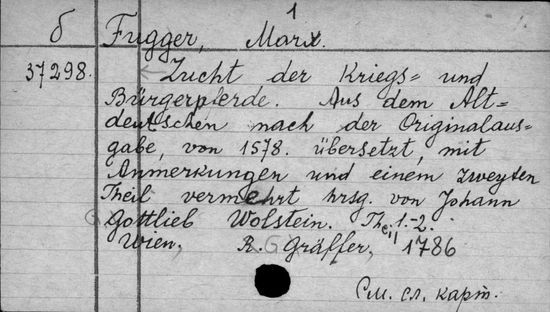 1
б Fugger, Marx.
37298. Zucht der Kriegs= und
Bürgerpferde. Aus dem Alt=
deutschen nach der Originalaus-
gabe, von 1578. übersetzt, mit
Anmerkungen und einem zweyten
Theil vermehrt hrsg. von Johann
Gottlieb Wolstein. Theil 1.-2.
Wien, R. Gräffer, 1786
См. сл. карт.